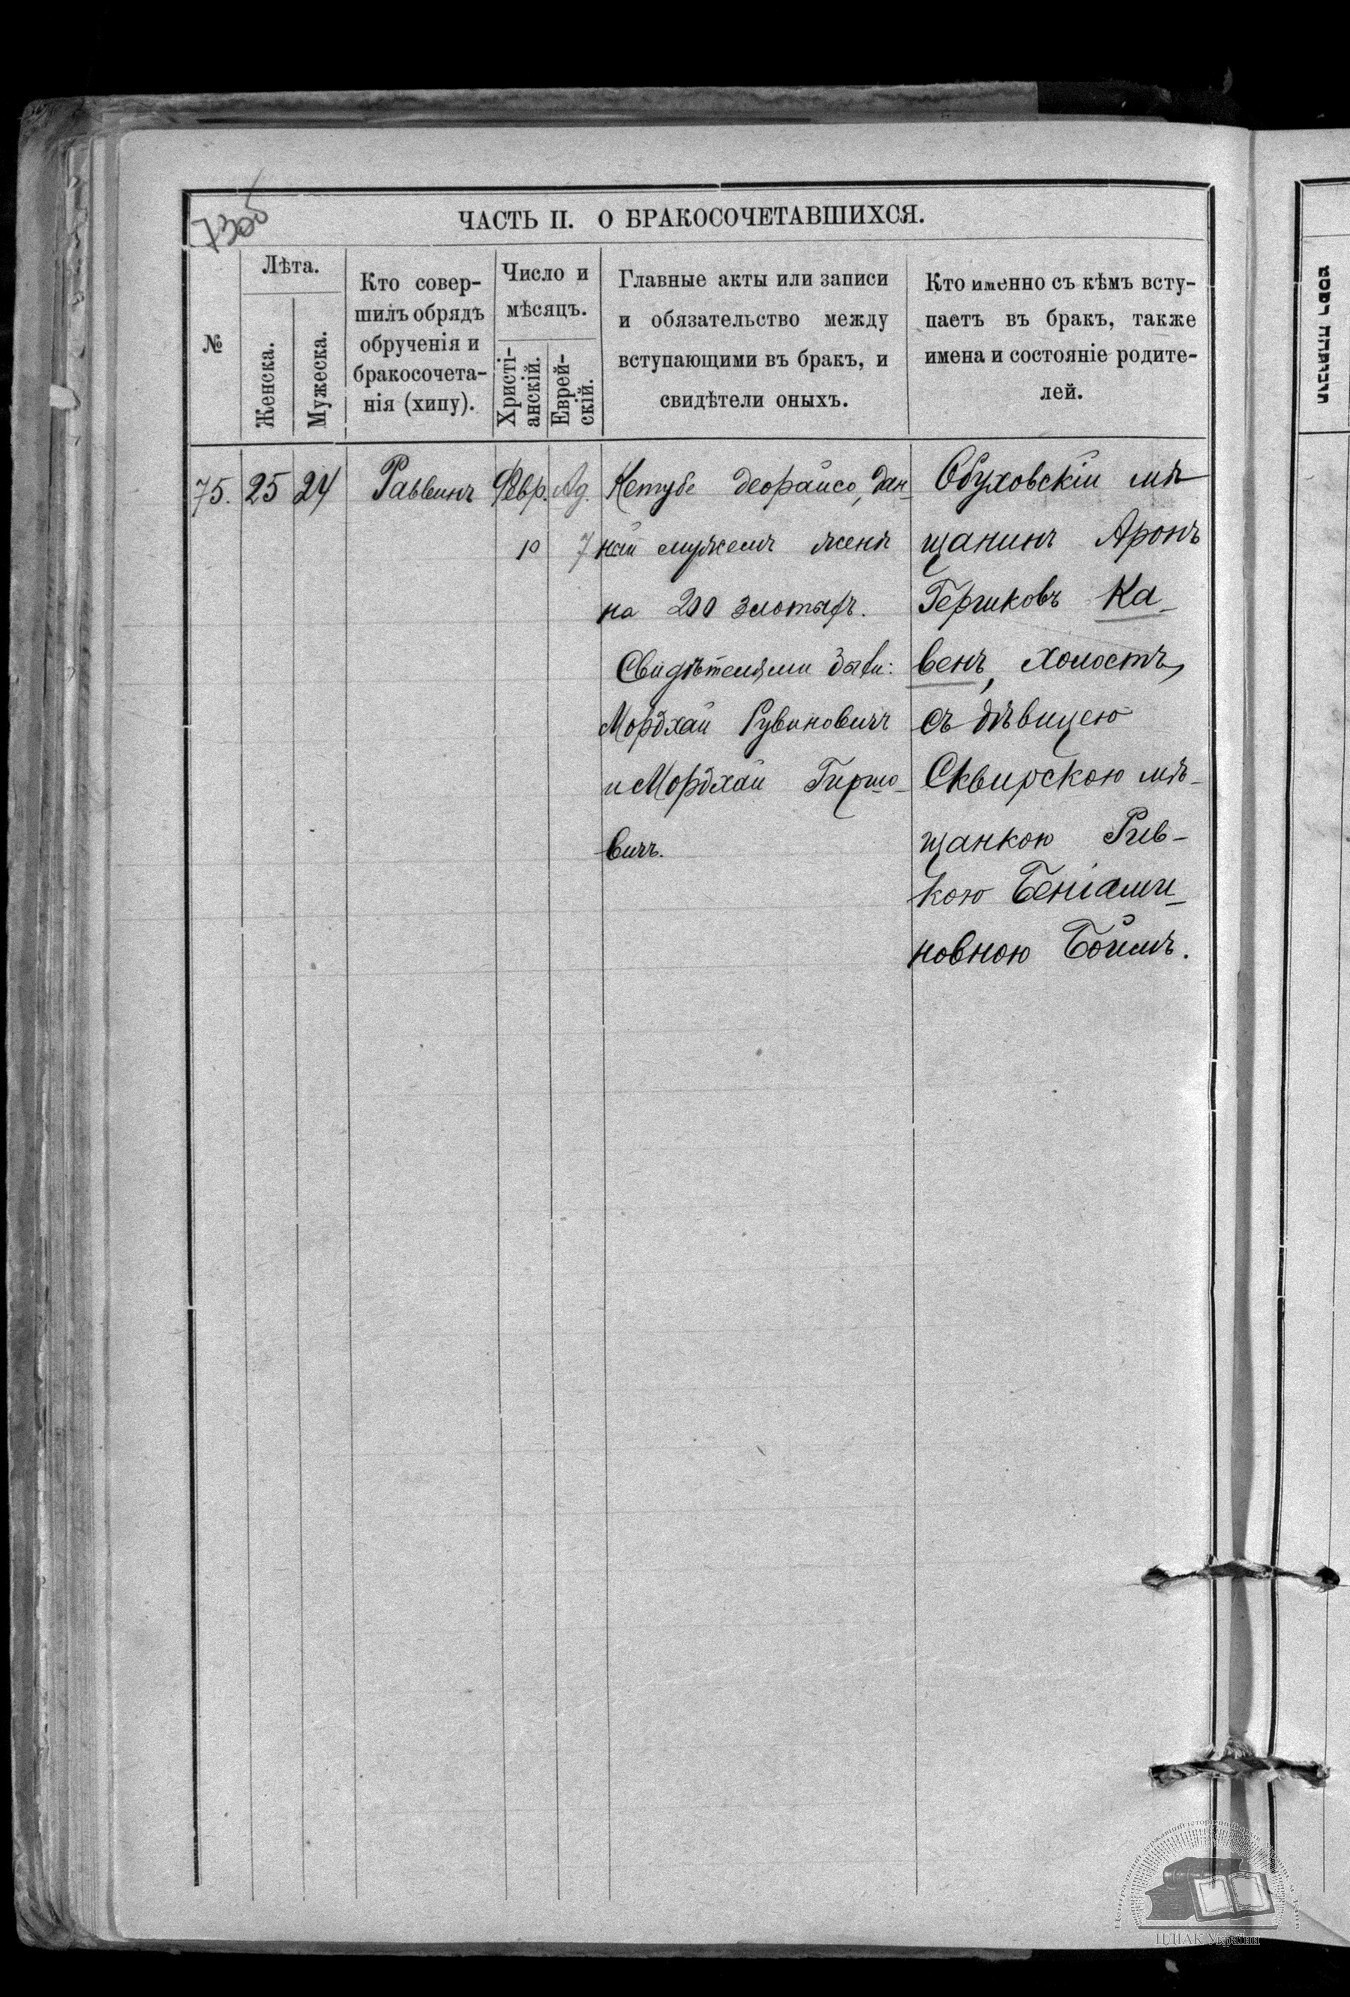 730б
ЧАСТЬ II. О БРАКОСОЧЕТАВШИХСЯ.
№
Лѣта.
Женска.
Мужеска.
Кто совер-
шилъ обрядъ
обрученія и
бракосочета-
нія (хипу).
Число и
мѣсяцъ.
Христі-
анскій.
Еврей-
скій.
Главные акты или записи
и обязательство между
вступающими въ брак, и
свидѣтели оныхъ.
Кто именно съ кѣмъ всту-
паетъ въ бракъ, также
имена и состояніе родите-
лей.
75.
25
24
Раввинъ
Февр.
10
Ад.
7
Кетубе деорайсо, дан-
ной мужемъ женѣ
на 200 злотыхъ.
Свидѣтелями были:
Мордхай Рувиновичъ
и Мордхай Гиршо-
вичъ.
Обуховскій мѣ-
щанинъ Аронъ
Гершковъ Ка-
венъ, холостъ,
съ дѣвицею
Сквирскою мѣ-
щанкою Рив-
кою Беніами-
новною Боймъ.
ЦДІАК України